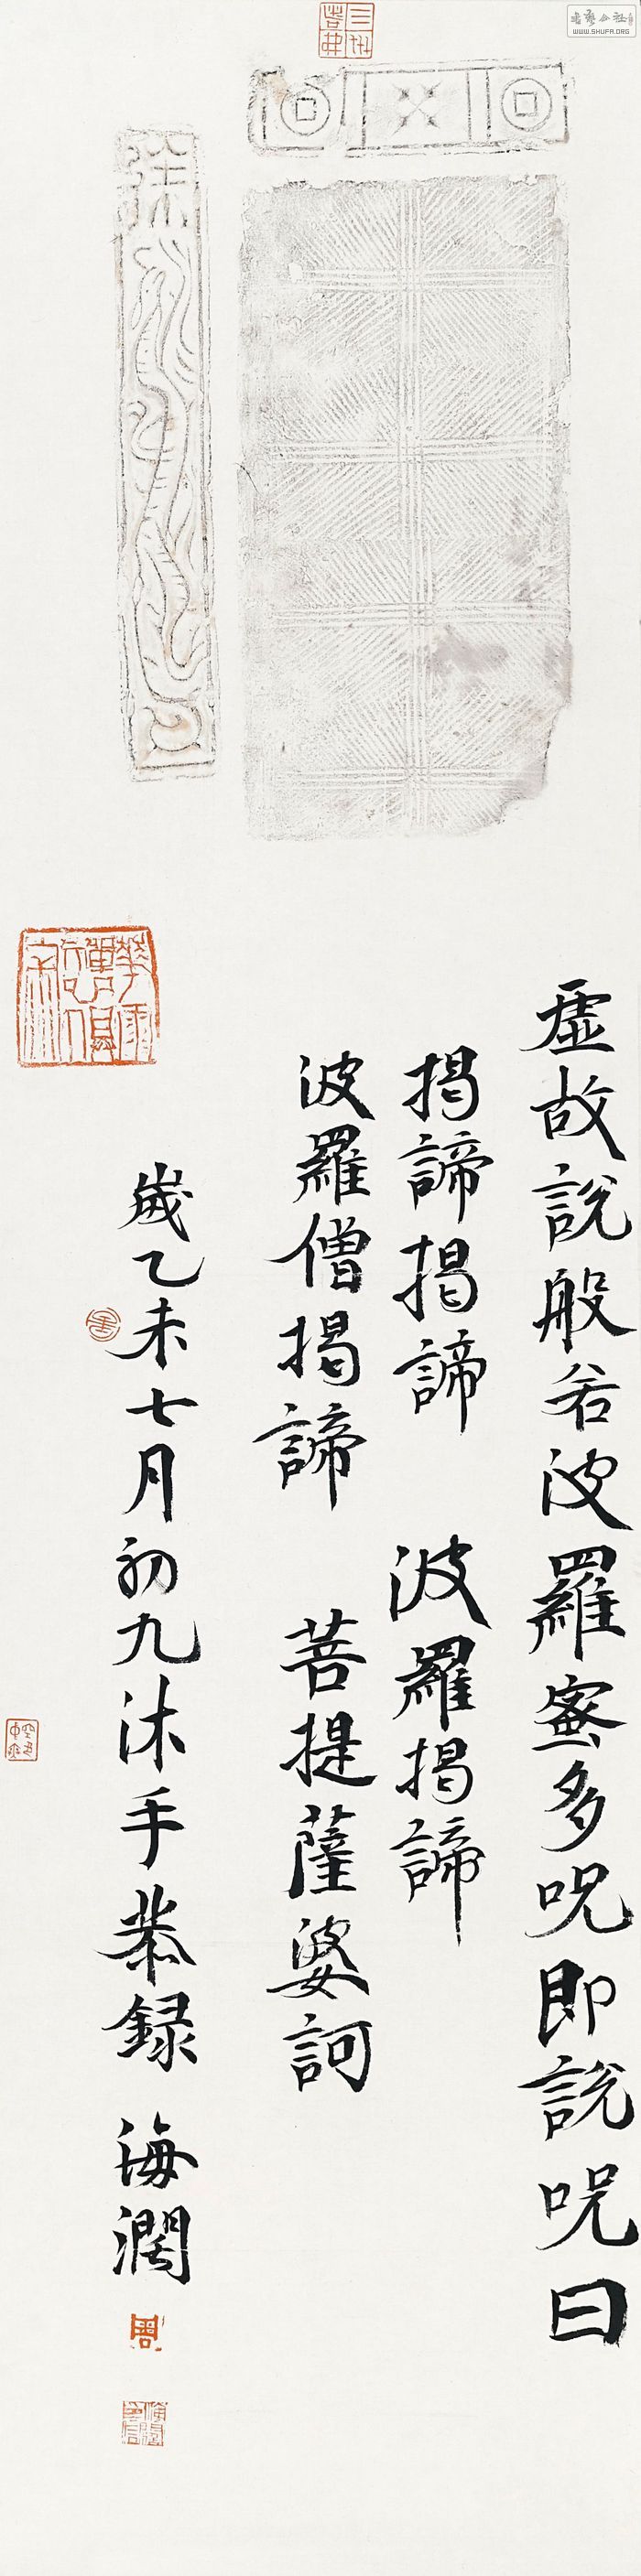 虛故說般若波羅蜜多呪即說呪曰
揭諦揭諦 波羅揭諦
波羅僧揭諦 菩提薩婆訶
歲乙未七月初九沐手恭録 海潤
WWW.SHUFA.ORG